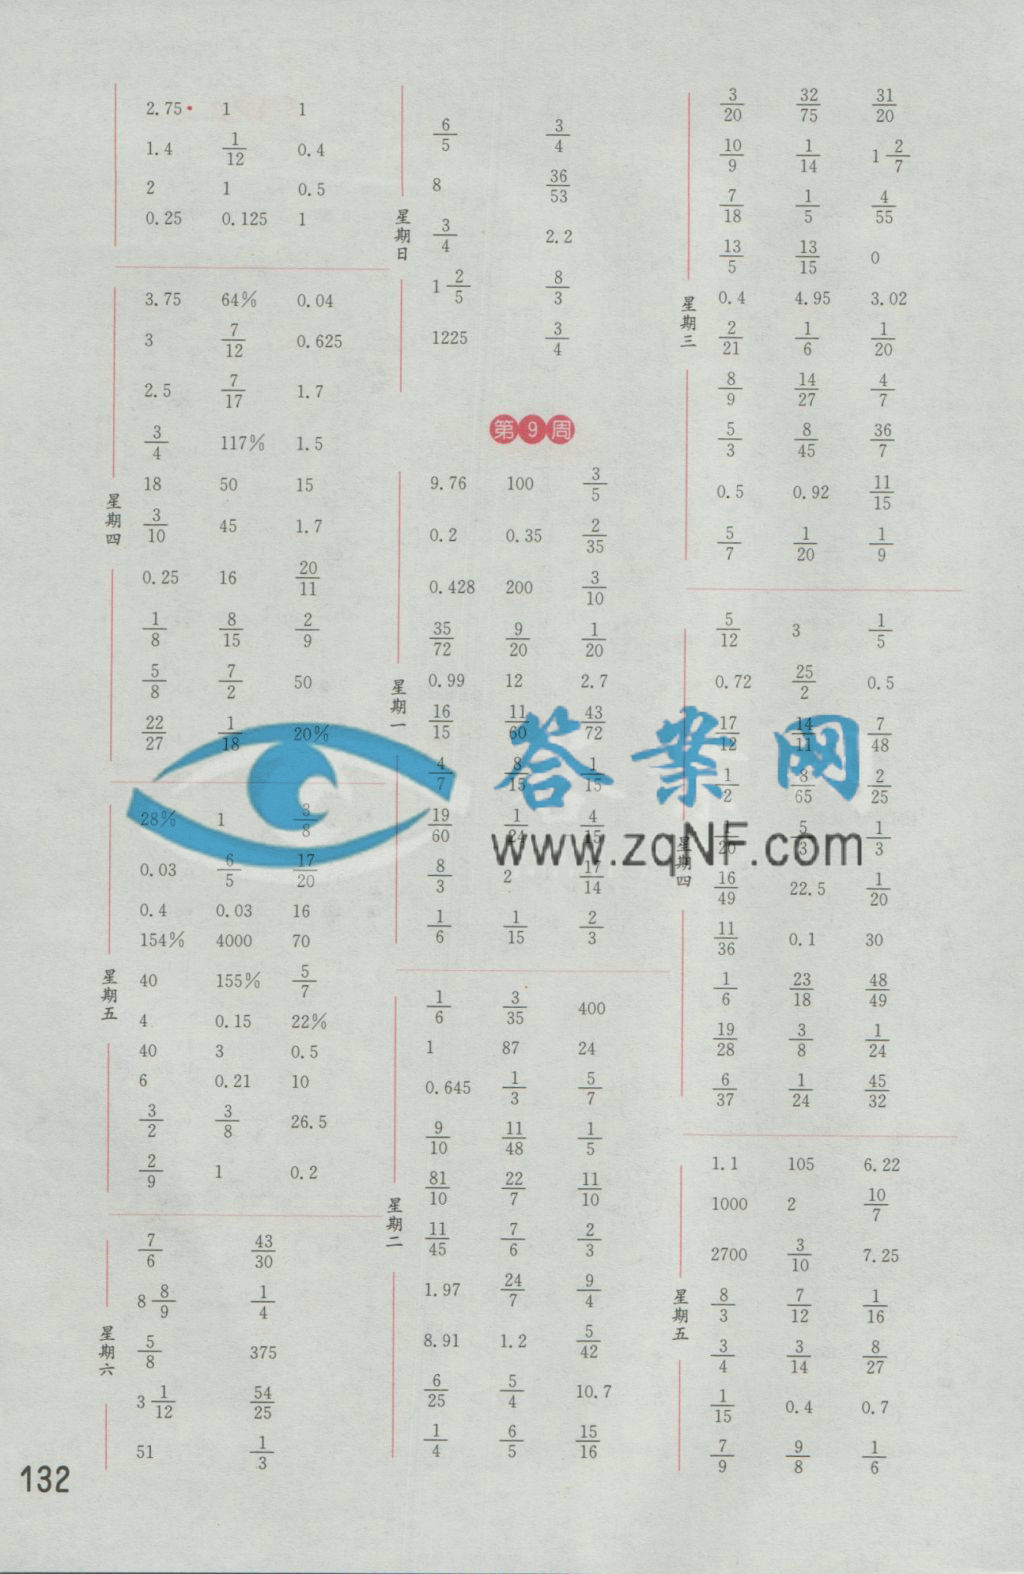 2.75 1 1
1.4 1/12 0.4
2 1 0.5
0.25 0.125 1
星期四
3.75 64% 0.04
3 7/12 0.625
2.5 7/17 1.7
3/4 117% 1.5
18 50 15
3/10 45 1.7
0.25 16 20/11
1/8 8/15 2/9
5/8 7/2 50
22/27 1/18 20%
星期五
28% 1 3/8
0.03 6/5 17/20
0.4 0.03 16
154% 4000 70
40 155% 5/7
4 0.15 22%
40 3 0.5
6 0.21 10
3/2 3/8 26.5
2/9 1 0.2
星期六
7/6 43/30
8 8/9 1/4
5/8 375
3 1/12 54/25
51 1/3
星期日
6/5 3/4
8 36/53
3/4 2.2
1 2/5 8/3
1225 3/4
第9周
星期一
9.76 100 3/5
0.2 0.35 2/35
0.428 200 3/10
35/72 9/20 1/20
0.99 12 2.7
16/15 11/60 43/72
4/7 8/15 1/15
19/60 1/24 4/15
8/3 2 17/14
1/6 1/15 2/3
星期二
1/6 3/35 400
1 87 24
0.645 1/3 5/7
9/10 11/48 1/5
81/10 22/7 11/10
11/45 7/6 2/3
1.97 24/7 9/4
8.91 1.2 5/42
6/25 5/4 10.7
1/4 6/5 15/16
星期三
3/20 32/75 31/20
10/9 1/14 1 2/7
7/18 1/5 4/55
13/5 13/15 0
0.4 4.95 3.02
2/21 1/6 1/20
8/9 14/27 4/7
5/3 8/45 36/7
0.5 0.92 11/15
5/7 1/20 1/9
星期四
5/12 3 1/5
0.72 25/2 0.5
17/12 14/11 7/48
1/2 8/65 2/25
5/3 1/3
16/49 22.5 1/20
11/36 0.1 30
1/6 23/18 48/49
19/28 3/8 1/24
6/37 1/24 45/32
星期五
1.1 105 6.22
1000 2 10/7
2700 3/10 7.25
8/3 7/12 1/16
3/4 3/14 8/27
1/15 0.4 0.7
7/9 9/8 1/6
答案网
www.zqNF.com
132